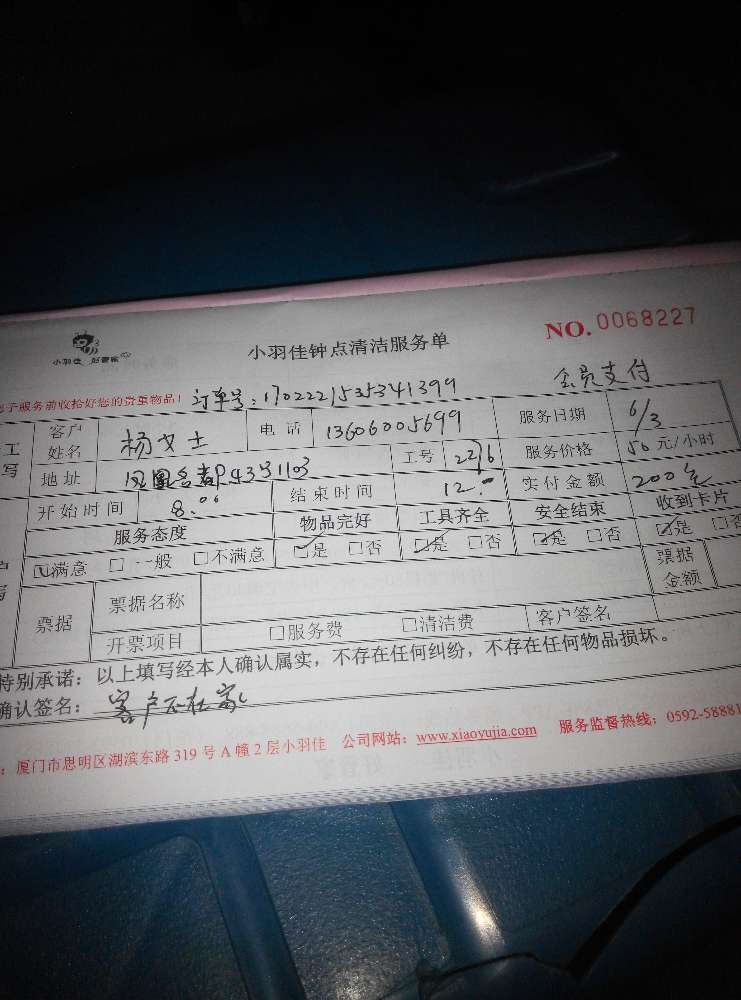 小羽佳 好管家
小羽佳钟点清洁服务单
NO.0068227
服务前收拾好您的贵重物品! 订单号:1702221535341399 会员支付
工 客户姓名 杨女士 电话 13606005699 服务日期 6/3
写 地址 1103 工号 2276 服务价格 50元/小时
开始时间 8:00 结束时间 12:00 实付金额 200元
服务态度 物品完好 工具齐全 安全结束 收到卡片
☑满意 □一般 □不满意 ☑是 □否 ☑是 □否 ☑是 □否 ☑是 □否
票据 票据名称 票据金额
开票项目 □服务费 □清洁费 客户签名
特别承诺:以上填写经本人确认属实,不存在任何纠纷,不存在任何物品损坏。
确认签名:客户不在家
:厦门市思明区湖滨东路319号A幢2层小羽佳 公司网站:www.xiaoyujia.com 服务监督热线:0592-58881